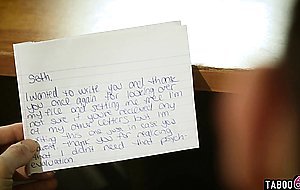 Seth,
I wanted to write you and thank
you once again for looking over
my file and setting me free I'm
not sure if you've received any
of my other letters but I'm
this one just in case you
thank you for realizing
that I didn't need that psych-
evaluation.
TABOO